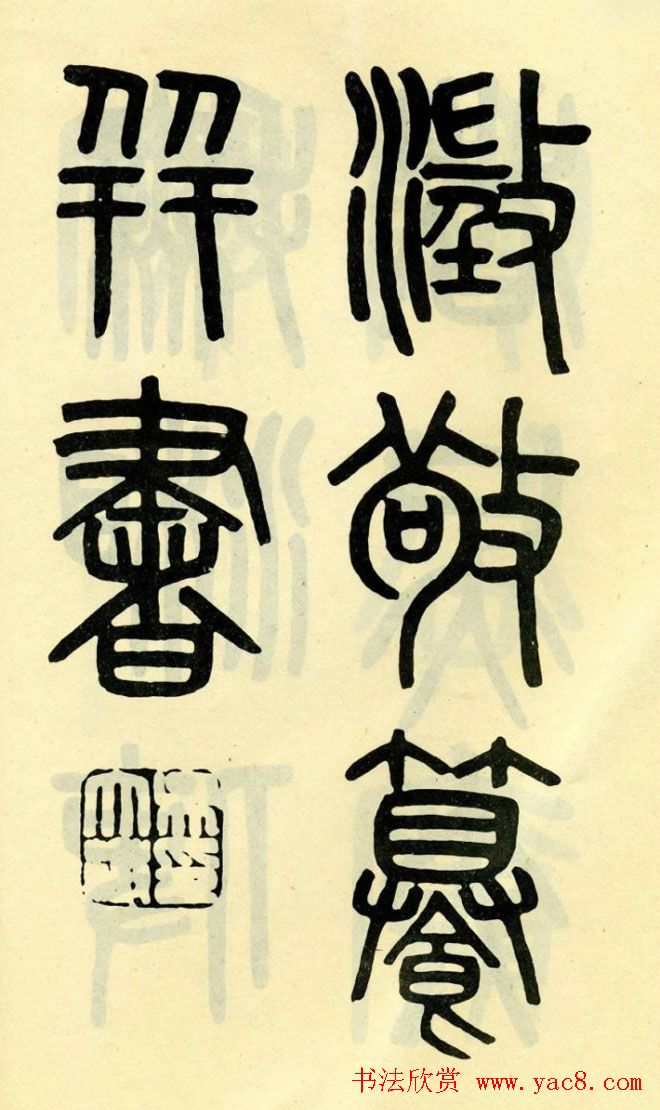 澂敬籑
幷書
书法欣赏 www.yac8.com